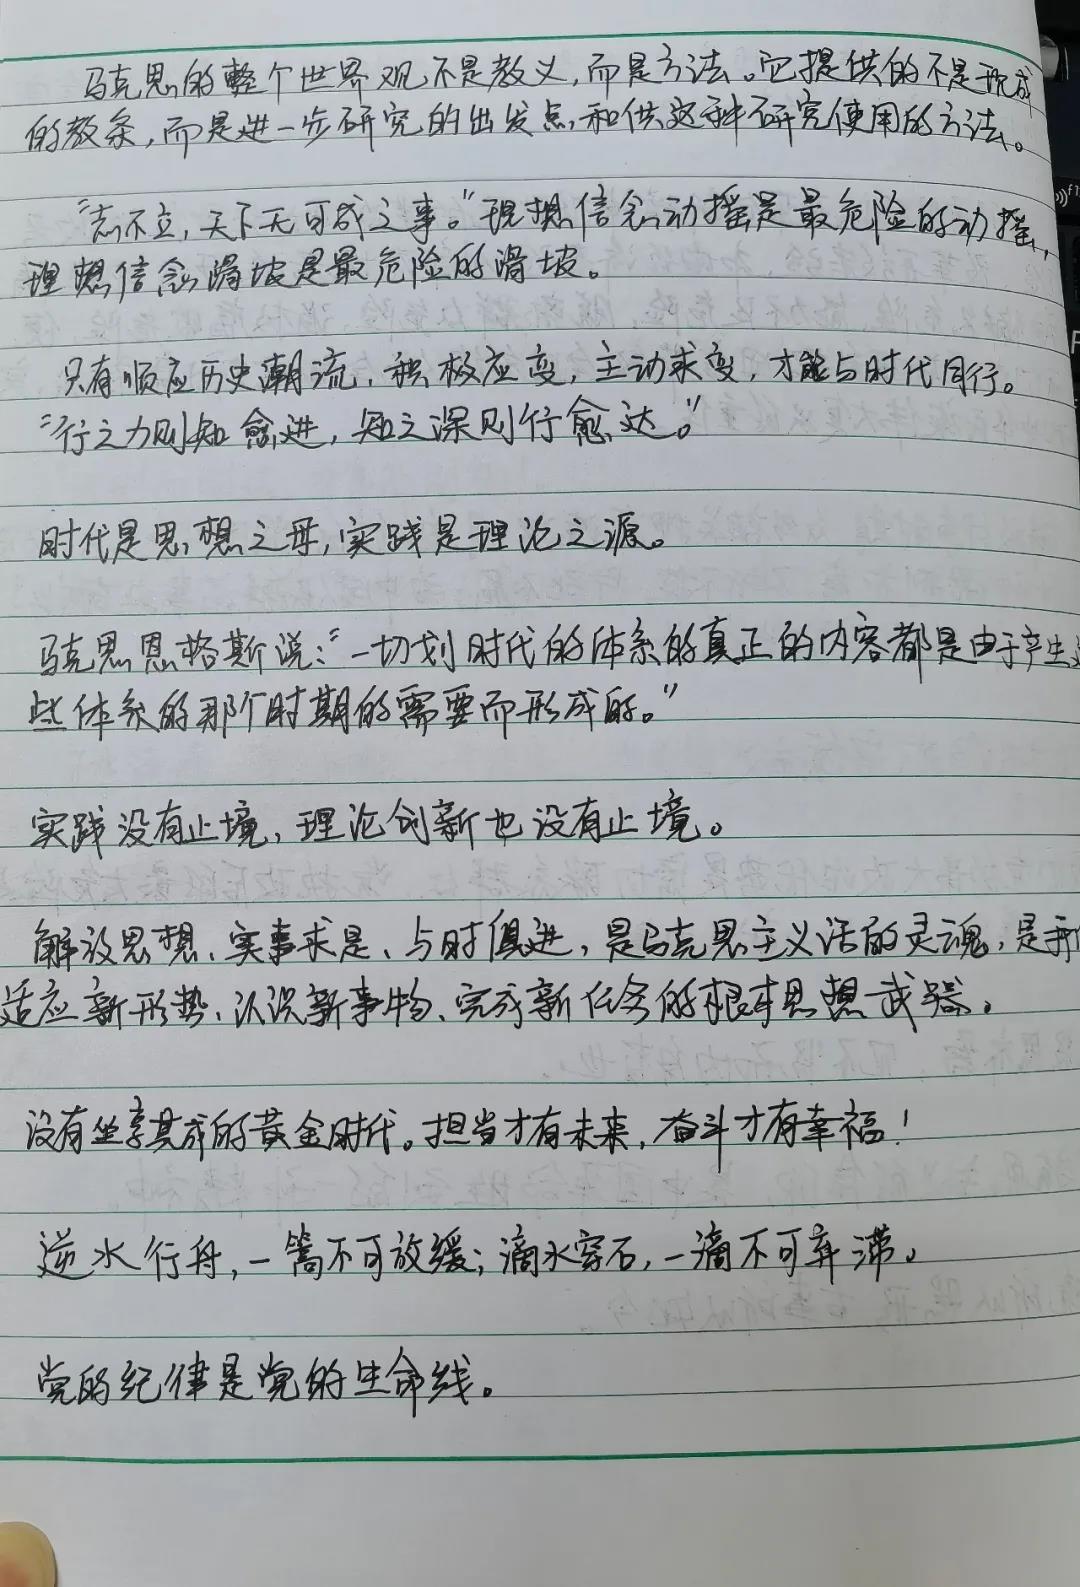 马克思的整个世界观不是教义，而是方法。它提供的不是现成
的教条，而是进一步研究的出发点，和供这种研究使用的方法。
“志不立，天下无可成之事。”理想信念动摇是最危险的动摇，
理想信念滑坡是最危险的滑坡。
只有顺应历史潮流，积极应变，主动求变，才能与时代同行。
“行之力则知愈进，知之深则行愈达。”
时代是思想之母，实践是理论之源。
马克思恩格斯说：“一切划时代的体系的真正的内容都是由于产生这
些体系的那个时期的需要而形成的。”
实践没有止境，理论创新也没有止境。
解放思想、实事求是、与时俱进，是马克思主义活的灵魂，是我们
适应新形势、认识新事物、完成新任务的根本思想武器。
没有坐享其成的黄金时代。担当才有未来，奋斗才有幸福！
逆水行舟，一篙不可放缓；滴水穿石，一滴不可弃滞。
党的纪律是党的生命线。